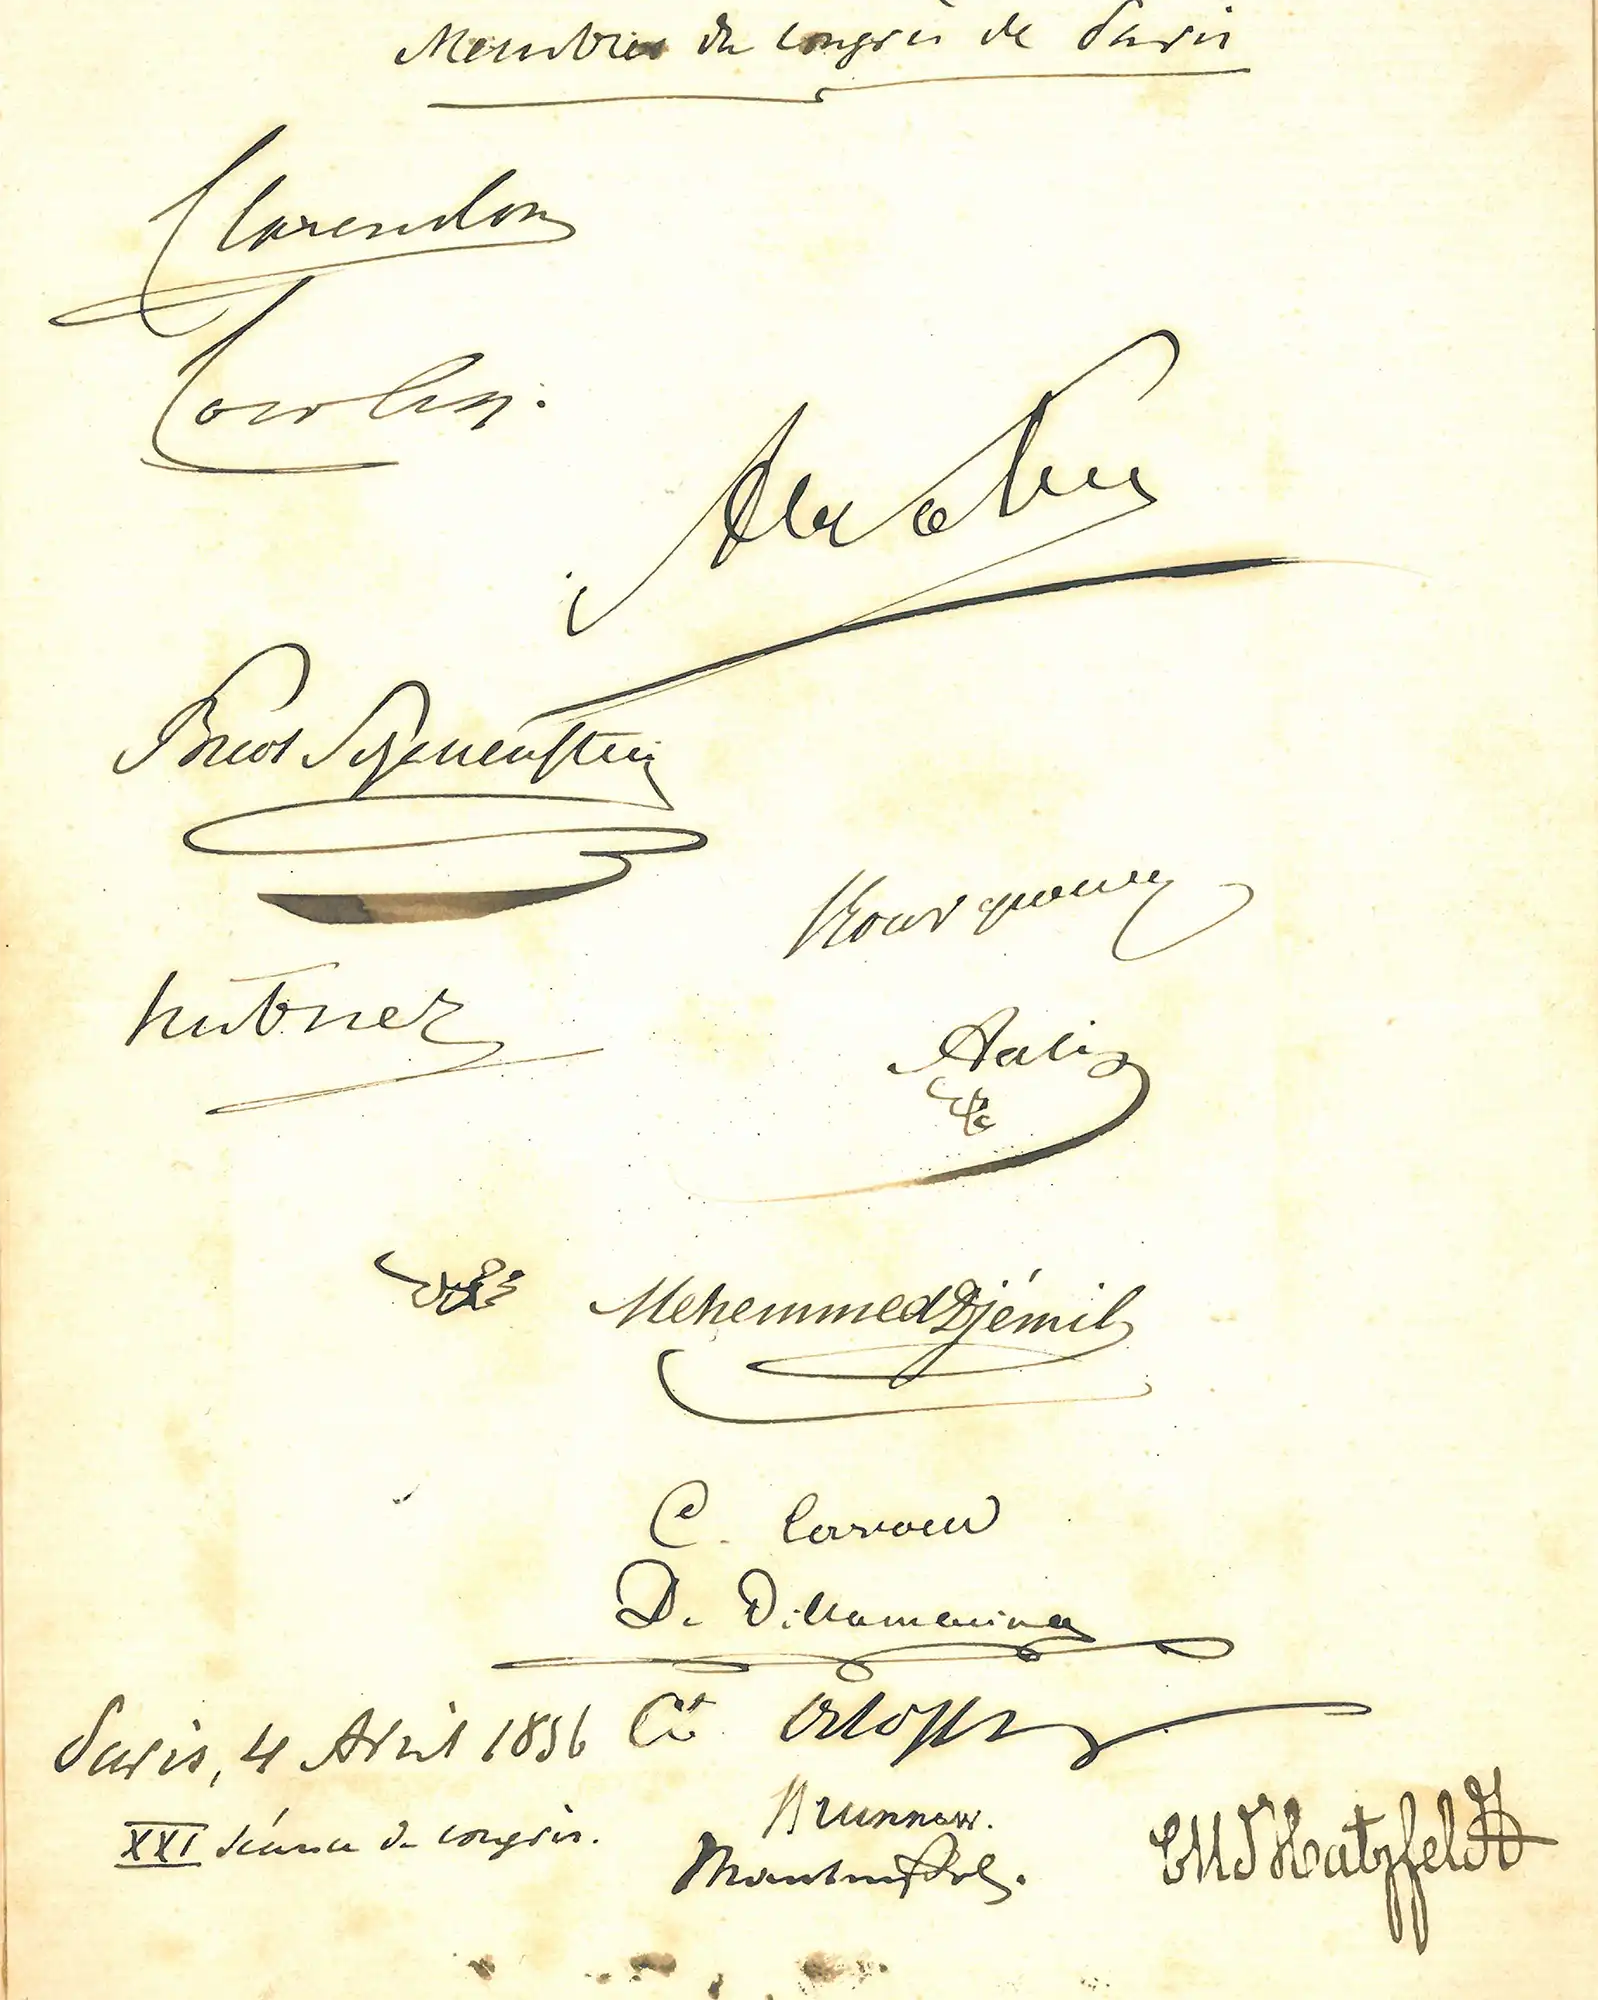 Membres du congrès de Paris
Clarendon
Cowley.
A Walewski
Buol Schauenstein
Bourqueney
hübner
Aali
Mehemmed Djémil
C. Cavour
D. Villamarina
Paris, 4 Avril 1856 Ct Orloff
Brunnow.
XXI séance du congrès.
Manteuffel.
CMJHatzfeldt